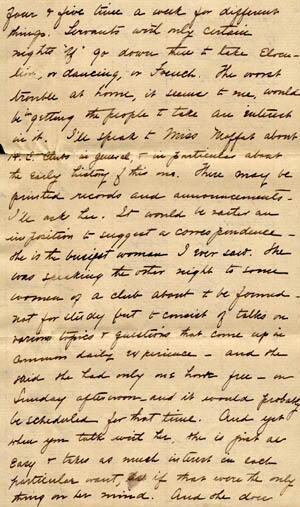 four & five times a week for different
things. Servants with only certain
nights "off" go down there to take Elocu-
tion, or dancing, or French. The worst
trouble at home, it seems to me, would
be getting the people to take an interest
in it. I'll speak to Miss Moffet about
N. E. Clubs in general, & in particular about
the early history of this one. There may be
printed records and announcements-
I'll ask her. It would be rather an
imposition to suggest a correspondence-
she is the busiest woman I ever saw. She
was speaking the other night to some
women of a club about to be formed-
not for study but to consist of talks on
various topics & questions that come up in
common daily experience - and she
said she had only one hour free - on
Sunday afternoon - and it would probably
be scheduled for that time. And yet
when you talk with her, she is just as
easy & takes as much interest in each
particular want, as if that were the only
thing on her mind. And she does